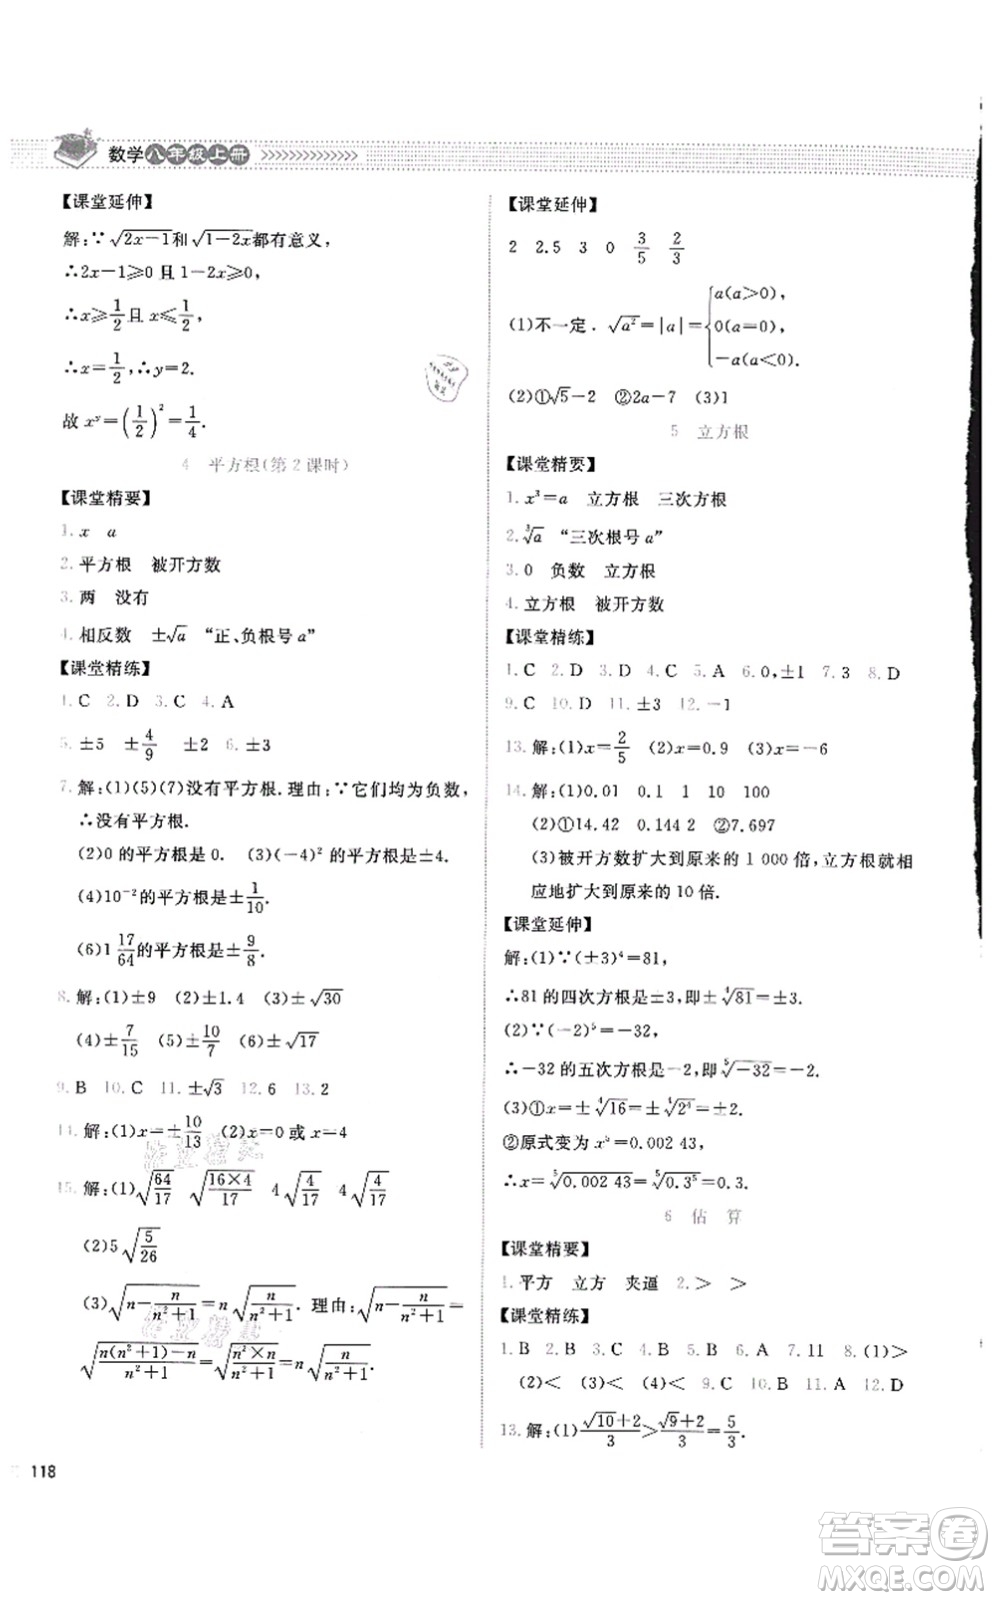 数学八年级上册
【课堂延伸】
解:∵√(2x−1)和√(1−2x)都有意义,
∴2x−1⩾0 且 1−2x⩾0,
∴x⩾1/2 且 x⩽1/2,
∴x=1/2,∴y=2.
故 x^y=(1/2)^2=1/4.
4 平方根(第 2 课时)
【课堂精要】
1. x a
2. 平方根 被开方数
3. 两 没有
4. 相反数 ±√a “正、负根号 a”
【课堂精练】
1. C 2. D 3. C 4. A
5. ±5 ±4/9 ±2 6. ±3
7. 解:(1)(5)(7)没有平方根.理由:∵它们均为负数,
∴没有平方根.
(2)0 的平方根是 0. (3)(−4)^2 的平方根是±4.
(4)10^−2 的平方根是±1/10.
(6)1 17/64 的平方根是±9/8.
8. 解:(1)±9 (2)±1.4 (3)±√30
(4)±7/15 (5)±10/7 (6)±√17
9. B 10. C 11. ±√3 12. 6 13. 2
14. 解:(1)x=±10/13 (2)x=0 或 x=4
15. 解:(1)√(64/17) √((16×4)/17) 4√(4/17) 4√(4/17)
(2)5√(5/26)
(3)√(n−n/(n^2+1))=n√(n/(n^2+1)). 理由:√(n−n/(n^2+1))=
√((n(n^2+1)−n)/(n^2+1))=√((n^2×n)/(n^2+1))=n√(n/(n^2+1)).
118
【课堂延伸】
2 2.5 3 0 3/5 2/3
(1)不一定. √(a^2)=|a|={a(a>0),
0(a=0),
−a(a<0).
(2)①√5−2 ②2a−7 (3)1
5 立方根
【课堂精要】
1. x^3=a 立方根 三次方根
2. ∛a “三次根号 a”
3. 0 负数 立方根
4. 立方根 被开方数
【课堂精练】
1. C 2. D 3. D 4. C 5. A 6. 0,±1 7. 13 8. D
9. C 10. D 11. ±3 12. −1
13. 解:(1)x=2/5 (2)x=0.9 (3)x=−6
14. 解:(1)0.01 0.1 1 10 100
(2)①14.42 0.144 2 ②7.697
(3)被开方数扩大到原来的 1 000 倍,立方根就相
应地扩大到原来的 10 倍.
【课堂延伸】
解:(1)∵(±3)^4=81,
∴81 的四次方根是±3,即±∜81=±3.
(2)∵(−2)^5=−32,
∴−32 的五次方根是−2,即⁵√(−32)=−2.
(3)①x=±∜16=±∜(2^4)=±2.
②原式变为 x^5=0.002 43,
∴x=⁵√(0.002 43)=⁵√(0.3^5)=0.3.
6 估 算
【课堂精要】
1. 平方 立方 夹逼 2. > >
【课堂精练】
1. B 2. B 3. B 4. B 5. C 6. A 7. 11 8. (1)>
(2)< (3)< (4)< 9. C 10. D 11. A 12. D
13. 解:(1)(√10+2)/3>(√9+2)/3=5/3.
答案卷
MXQE.COM